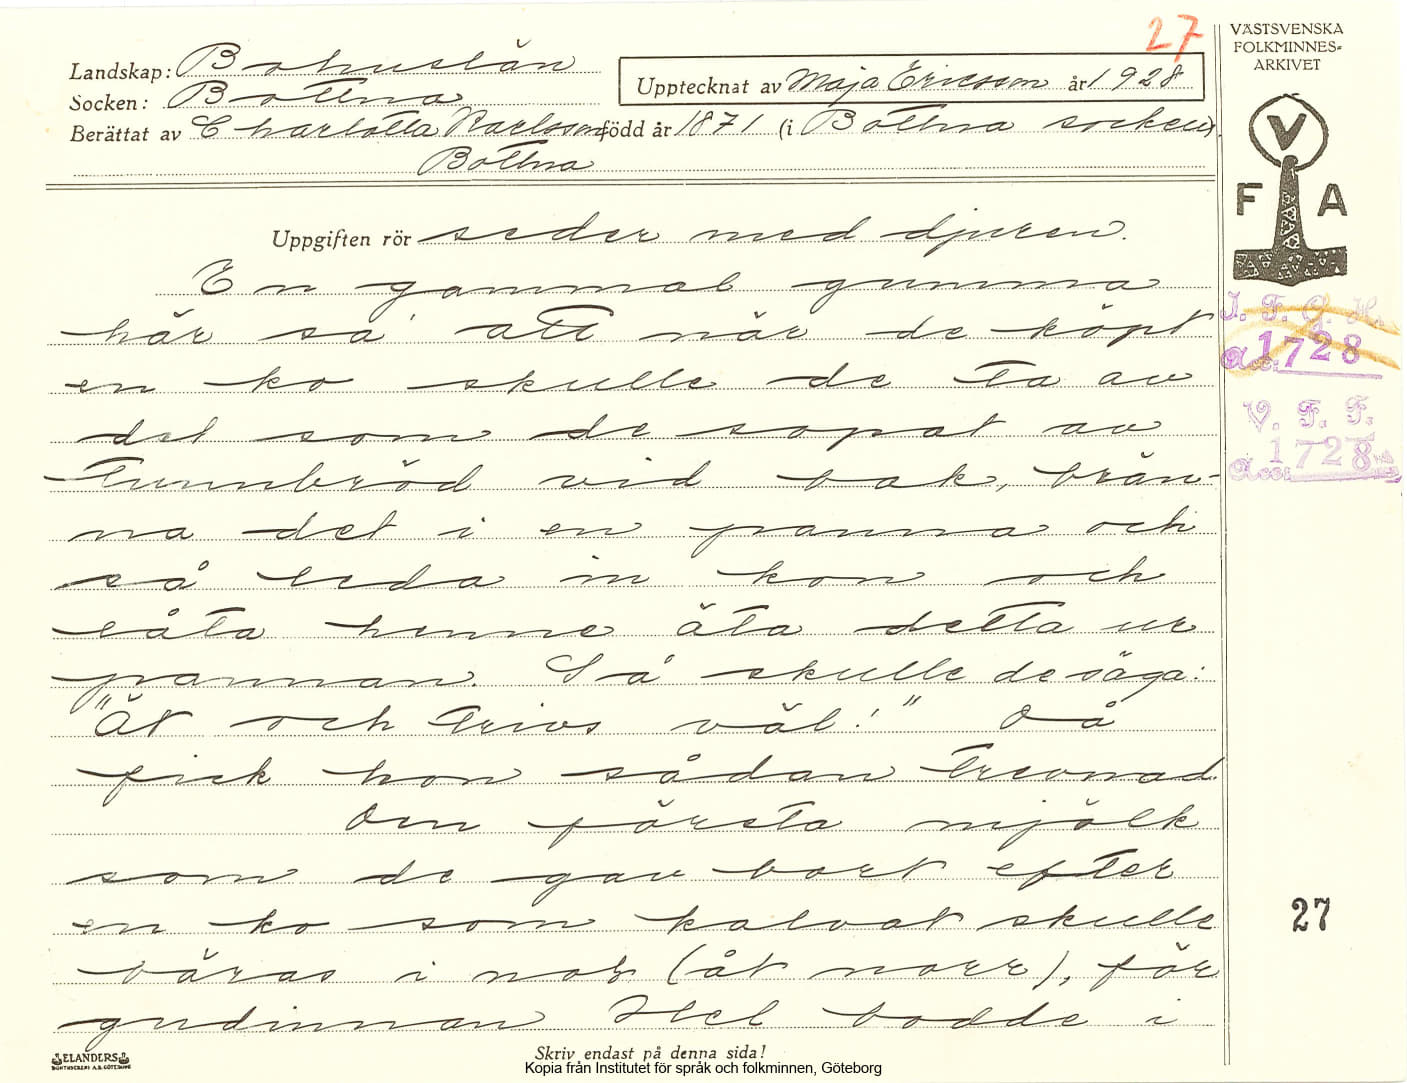 27
VÄSTSVENSKA
FOLKMINNES-
ARKIVET
Landskap: Bohuslän
Upptecknat av Maja Ericsson år 1928
Socken: Bottna
Berättat av Charlotta Karlsson född år 1871 (i Bottna socken).
Bottna
V
F A
Uppgiften rör seder med djuren.
En gammal gumma
här sa' att när de köpt
en ko skulle de ta av
det som de sopat av
tunnbröd vid bak, brän-
na det i en panna och
så leda in kon och
låta henne äta detta ur
pannan. Så skulle de säga:
"Ät och trivs väl!" Då
fick hon sådan trevnad.
Den första mjölk
som de gav bort efter
en ko som kalvat skulle
bäras i norr (åt norr), för
gudinnan Hel bodde i
I. F. G. H.
acc. 1728
V. F. F.
Acc. 1728
27
ELANDERS
BOKTRYCKERI A.B. GÖTEBORG
Skriv endast på denna sida!
Kopia från Institutet för språk och folkminnen, Göteborg